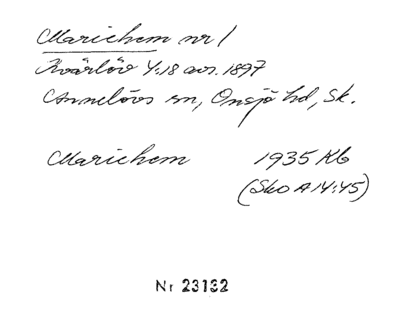 Mariehem nr 1
Kvärlöv 4:18 avs. 1897
Annelövs sn, Onsjö hd, Sk.
Mariehem 1935 Kb
(Sko A 14:45)
Nr 23132